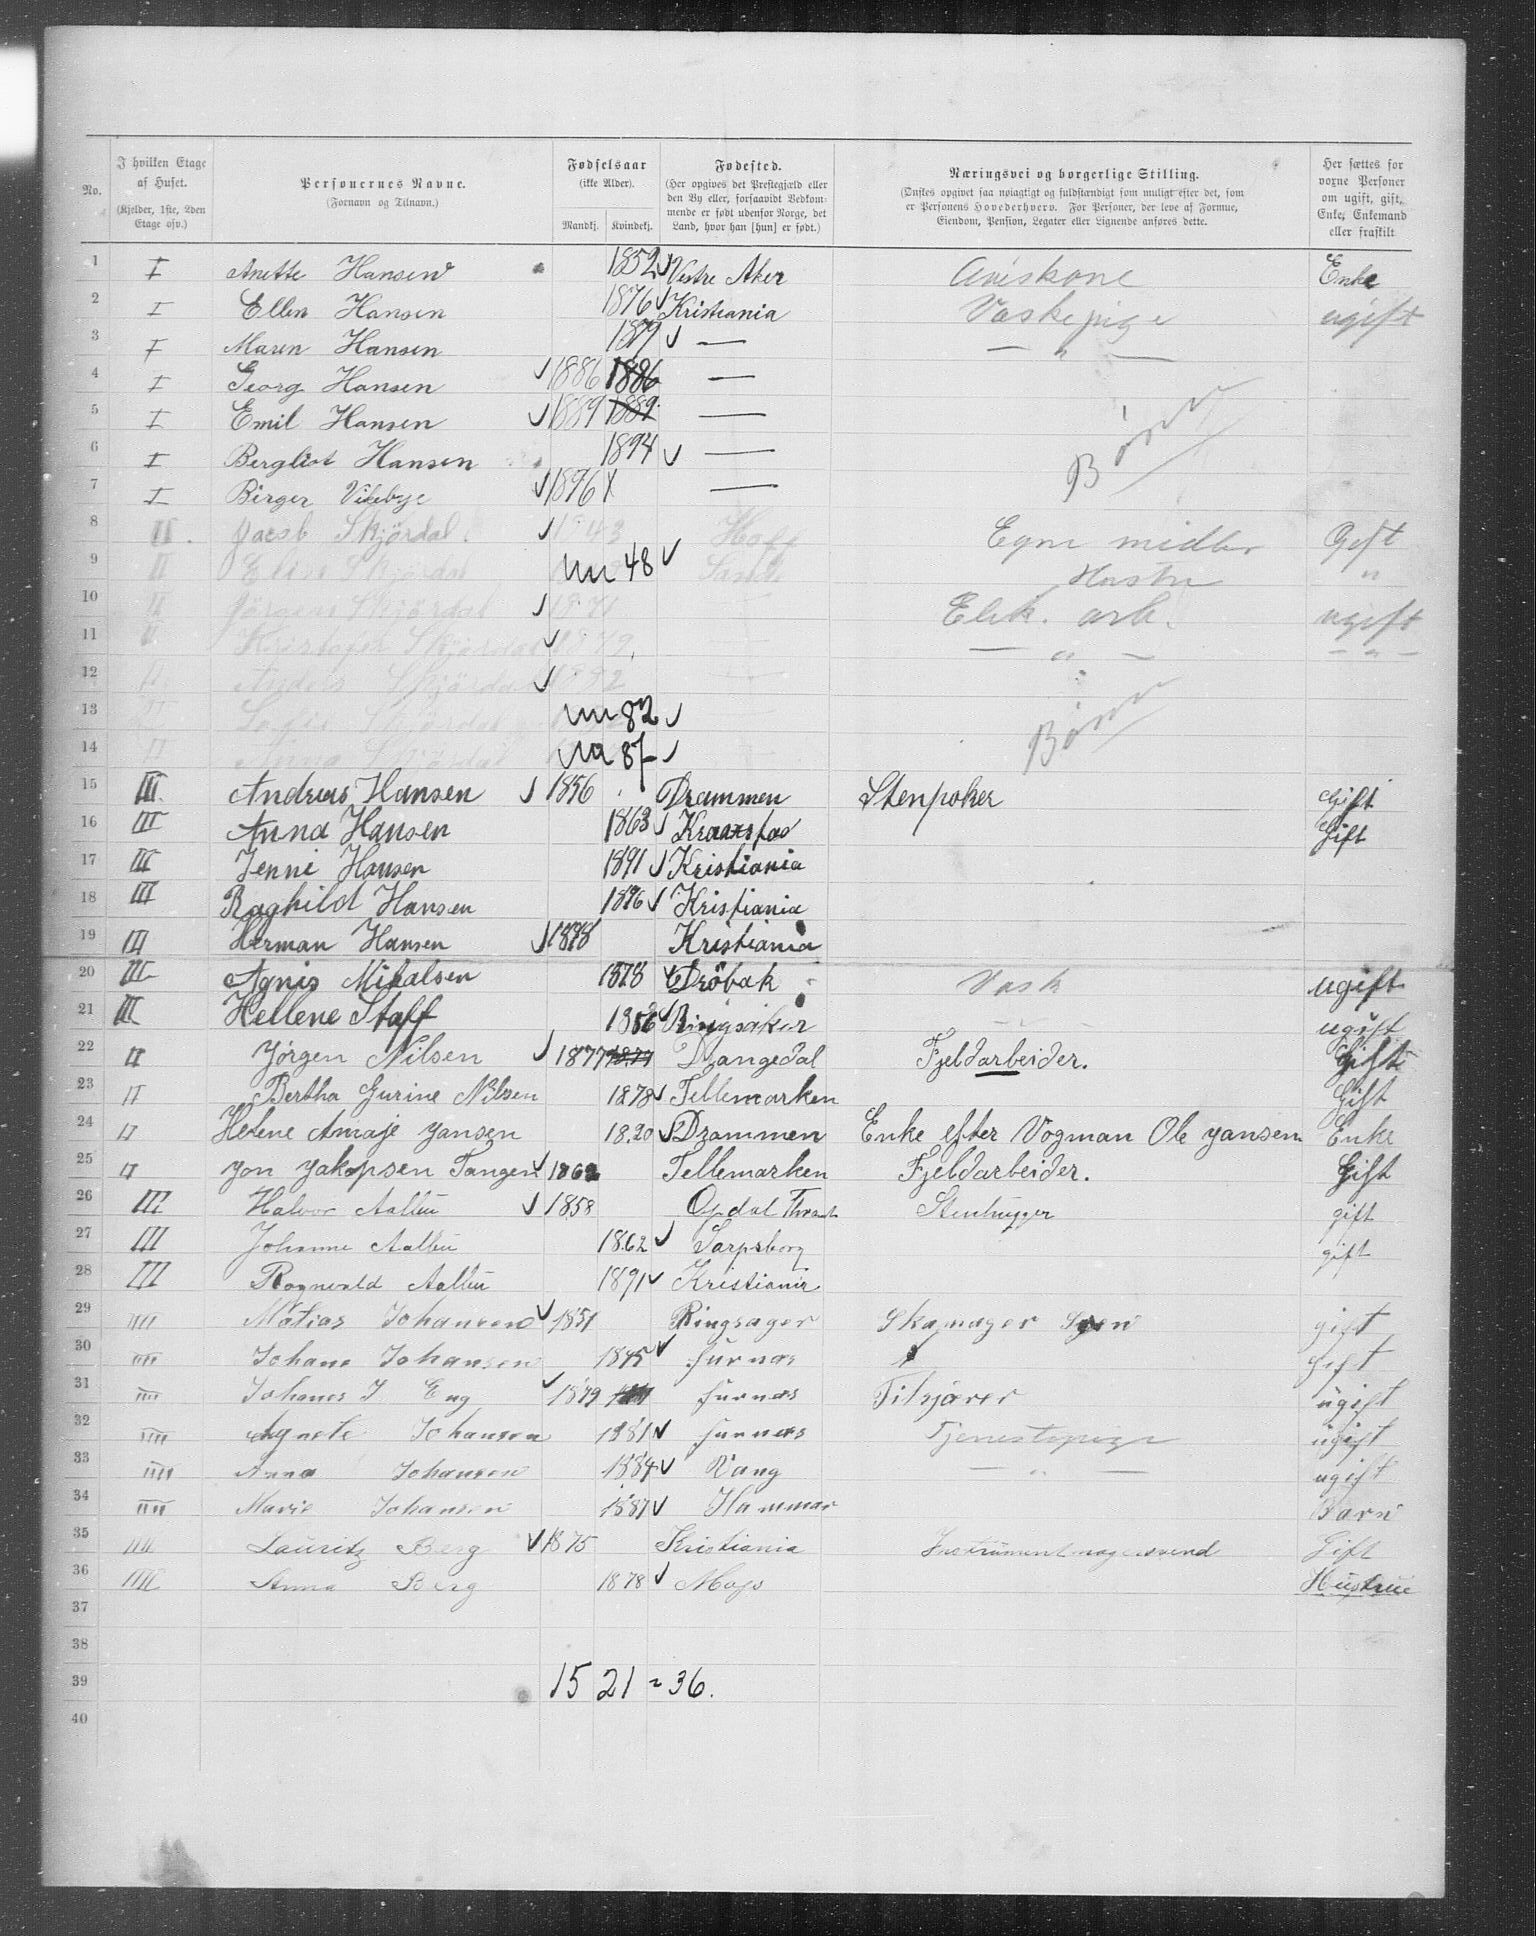 No.	I hvilken Etage af Huset. (Kjelder, 1ste, 2den Etage osv.)	Personernes Navne. (Fornavn og Tilnavn.)	Fødselsaar (ikke Alder). Mandkj. Kvindekj.	Fødested. (Her opgives det Prestegjæld eller den By eller, forsaavidt Vedkommende er født udenfor Norge, det Land, hvor han [hun] er født.)	Næringsvei og borgerlige Stilling. (Ønskes opgivet saa nøiagtigt og fuldstændigt som muligt efter det, som er Personens Hovederhverv. For Personer, der leve af Formue, Eiendom, Pension, Legater eller Lignende anføres dette.)	Her sættes for voxne Personer om ugift, gift, Enke, Enkemand eller fraskilt
1 I Anette Hansen 1852 ✓ Vestre Aker Aviskone Enke
2 I Ellen Hansen 1876 ✓ Kristiania Vaskepige ugift
3 I Maren Hansen 1879 ✓ — — " —
4 I Georg Hansen ✓ 1886 1886 —
5 I Emil Hansen ✓ 1889 1889 — Børn
6 I Bergliot Hansen 1894 ✓ —
7 I Birger Vikebye ✓ 1896 X —
8 II. Jacob Skjördal. ✓ 1843 Hoff Egne midler Gift
9 II Elise Skjördal 48 ✓ Sande Hustru "
10 II Jörgen Skjördal ✓ 1871 — Elek. arb. ugift
11 II Kristofer Skjördal ✓ 1879. — — " — — " —
12 II Anders Skjördal ✓ 1882 —
13 II Skjördal 82 ✓ Børn
14 II Anna Skjördal ✓
15 III Andreas Hansen ✓ 1856 Drammen Stenpoker Gift
16 III Anna Hansen 1863 ✓ Gift
17 III Jenni Hansen 1891 ✓ Kristiania
18 III Raghild Hansen 1896 ✓ Kristiania
19 III Herman Hansen ✓ 1898 Kristiania
20 III Agnis Mikalsen 1878 ✓ Dröbak Vask ugift
21 III Hellene Staff 1856 ✓ Ringsaker ugift
22 II Jørgen Nilsen ✓ 1877 Drangedal Fjeldarbeider. Gift
23 II Bertha Gurine Nilsen 1878 ✓ Tellemarken Gift
24 II Helene Amaje Jansen 1820 ✓ Drammen Enke efter Vogman Ole Jansen Enke
25 II Jon Jakopsen Tangen ✓ 1862 Tellemarken Fjeldarbeider. Gift
26 III Halvor Aalbu ✓ 1858 Opdal Stenhugger gift
27 III Johanne Aalbu 1862 ✓ Sarpsborg gift
28 III Rognvald Aalbu 1891 ✓ Kristiania
29 IIII Matias Johansen ✓ 1851 Ringsager Skamager Sven gift
30 IIII Johane Johansen 1845 ✓ furnas Gift
31 IIII Johanes J Eng ✓ 1879 furnas Tilskjærer ugift
32 IIII Agnete Johansen 1881 ✓ furnas Tjenestepige ugift
33 IIII Anna Johansen 1884 ✓ Vang — " — ugift
34 IIII Marie Johansen 1887 ✓ Hammar Barn
35 IIII Lauritz Berg ✓ 1875 Kristiania Instrumentmagersvend Gift
36 IIII Anna Berg 1878 ✓ Moss Hustrue
37
38
39 15 21 = 36.
40